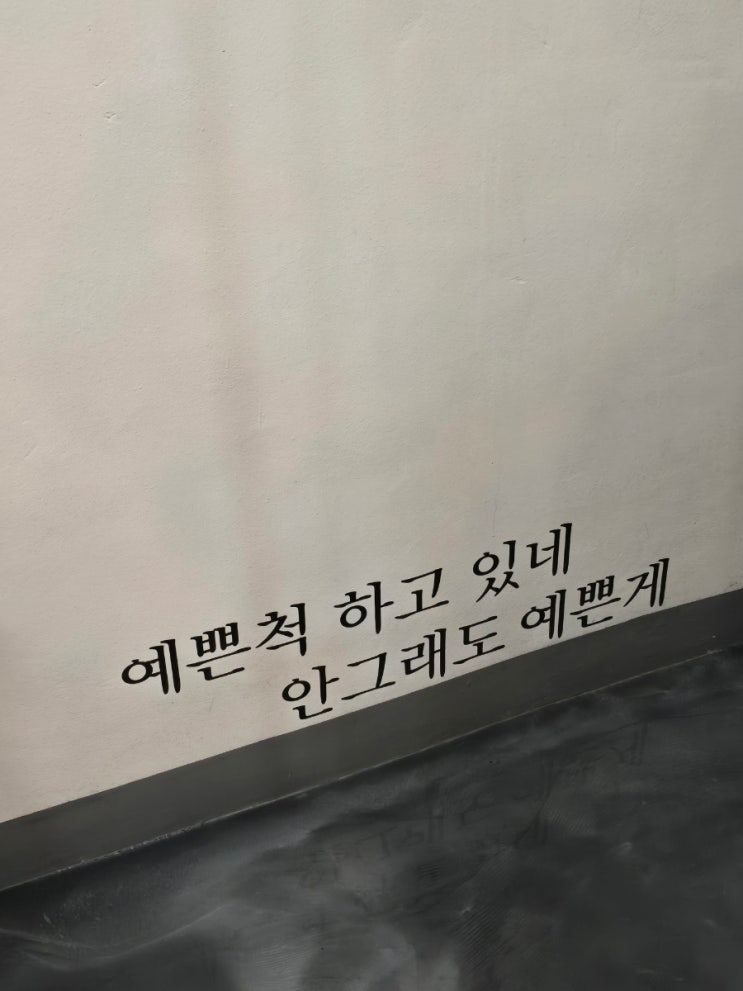 예쁜척 하고 있네
안그래도 예쁜게